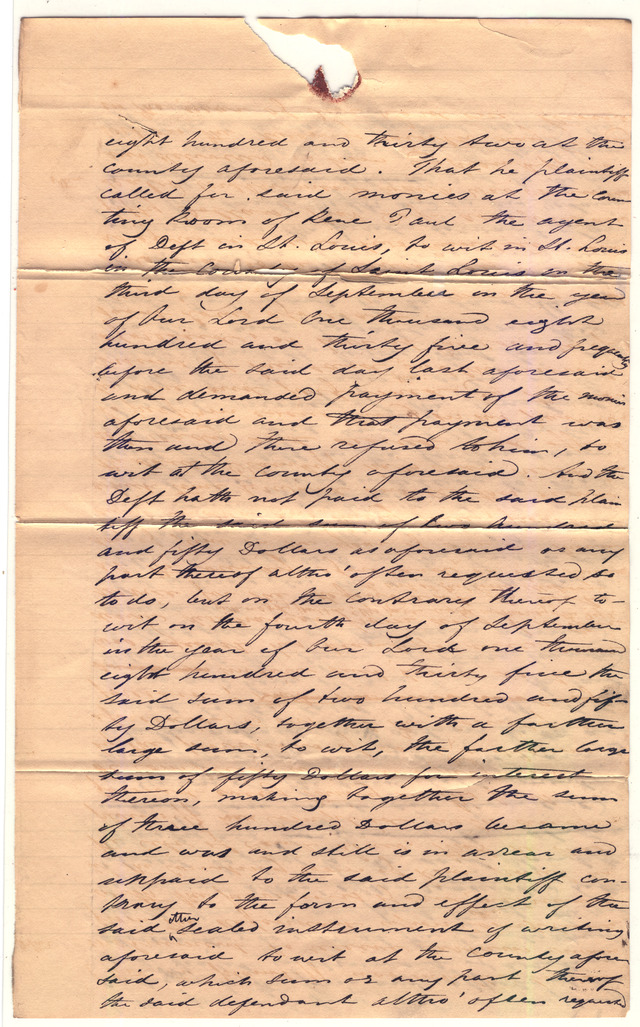 eight hundred and thirty two at the
county aforesaid. That he plaintiff
called for said monies at the coun
ting Room of Rene Paul the agent
of Deft in St. Louis, to wit in St. Louis
in the County of Saint Louis on the
third day of September in the year
of our Lord One thousand eight
hundred and thirty five and frequently
before the said day last aforesaid
and demanded payment of the monies
aforesaid and that payment was
then and there refused to him, to
wit at the county aforesaid. And the
Deft hath not paid to the said plain
tiff the said sum of two hundred
and fifty Dollars as aforesaid or any
part thereof altho' often requested so
to do, but on the contrary thereof to
wit on the fourth day of September
in the year of our Lord one thousand
eight hundred and thirty five the
said sum of two hundred and fif-
ty Dollars, together with a farther
large sum, to wit, the farther large
sum of fifty Dollars for interest
thereon, making together the sum
of three hundred Dollars became
and was and still is in arrear and
unpaid to the said plaintiff con-
trary to the form and effect of the
said other sealed instrument of writing
aforesaid to wit at the county afore
said, which sum or any part thereof
the said defendant altho' often requested